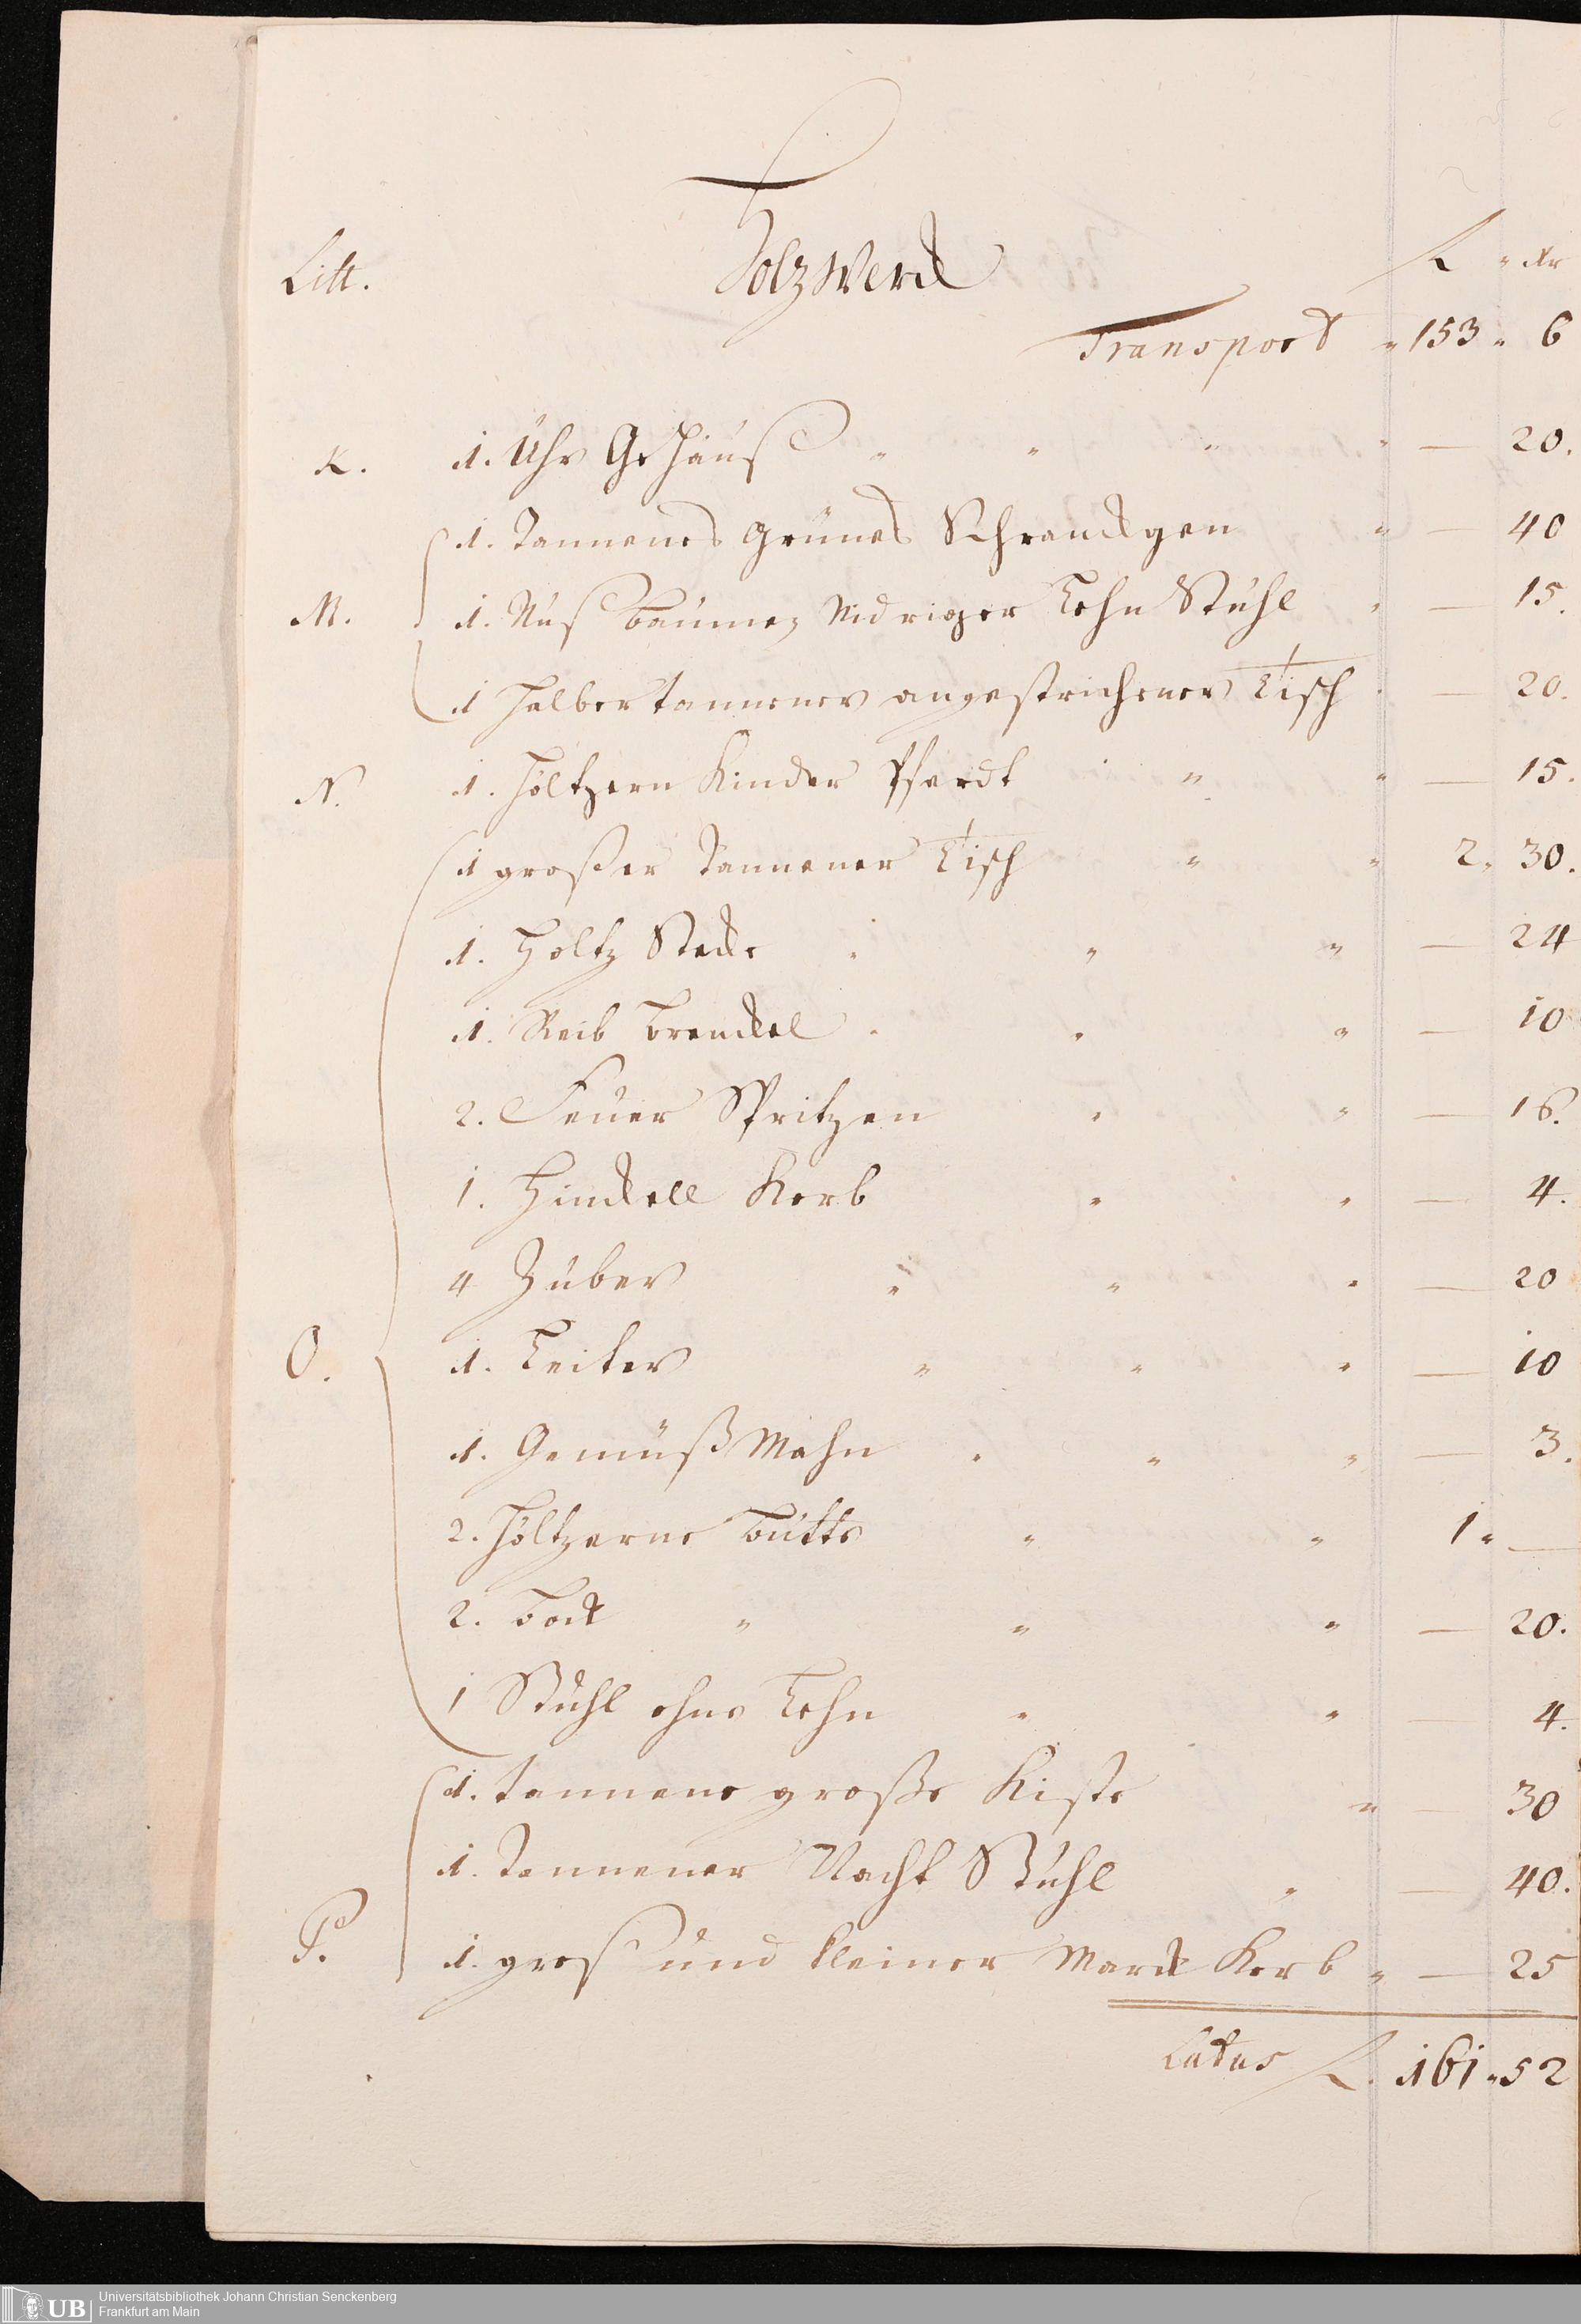 Litt. Holz Werck f " xr
Transport " 153 " 6
K. 1. Uhr Gehäuß " " " " — 20.
1. Tannenes grünes Schranckgen " — 40
M. 1. Nußbaumen Nidriger Lehn Stuhl " — 15.
1 halber tannener angestrichener Tisch " — 20.
N. 1. höltzern Kinder Pferdt " " — 15.
1 großer Tannener Tisch " " 2 " 30.
1. Holtz " " — 24
1. Reib " " — 10
2. Feuer Spritzen " " — 16.
1. Hinckell Korb " " — 4.
4 Zuber " " " — 20
O. 1. Leiter " " " — 10
1. Gemüß Mahn " " " — 3.
2. höltzerne Bütte " " 1 " —
2. Bock " " " — 20.
1 Stuhl ohne Lehn " " — 4.
1. tannene große Kiste " — 30
1. Tannener Nacht Stuhl " — 40.
P. 1. groß und kleiner Marck Korb " — 25
Latus f. 161 " 52
UB Universitätsbibliothek Johann Christian Senckenberg
Frankfurt am Main